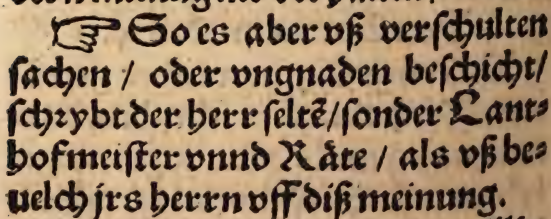 ☞ So es aber vß verschulten
sachen / oder vngnaden beschicht/
schrybt der herr seltẽ/sonder Lant⸗
hofmeister vnnd Räte / als vß be⸗
uelch jrs herrn vff diß meinung.